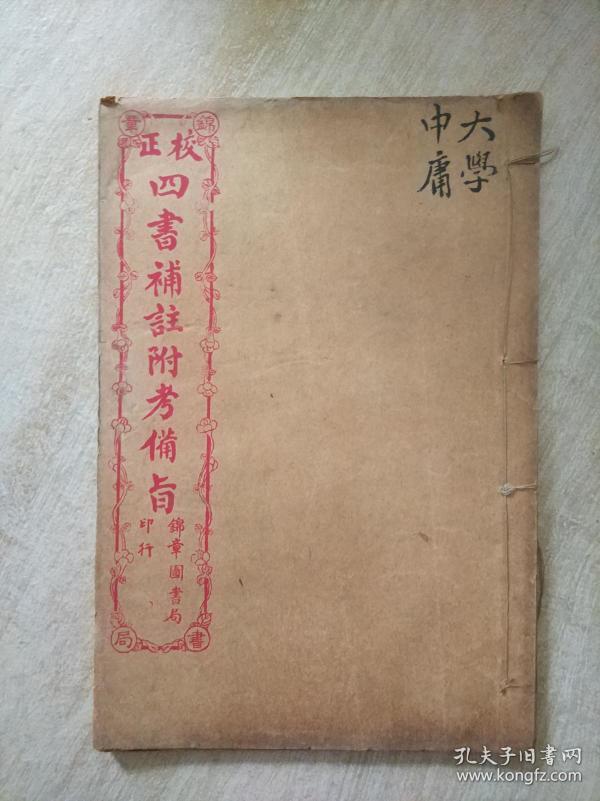 大學
中庸
錦章
校正
四書補註附考備旨
錦章圖書局
印行
書局
孔夫子旧书网
www.kongfz.com